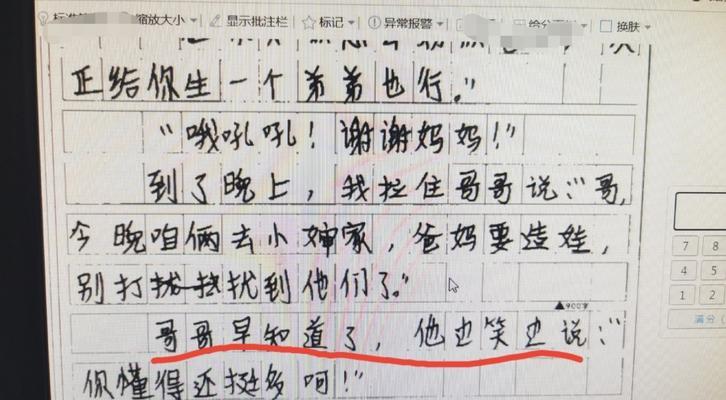 缩放大小 显示批注栏 标记 异常报警 换肤
正给你生一个弟弟也行。"
"哦吼吼！谢谢妈妈！"
到了晚上，我拉住哥哥说:"哥，
今晚咱俩去小婶家，爸妈要造娃，
别打扰到他们了。"
▲900字
哥哥早知道了，他边笑边说:"
你懂得还挺多呵！"
7 8
4 5
1 2
满分